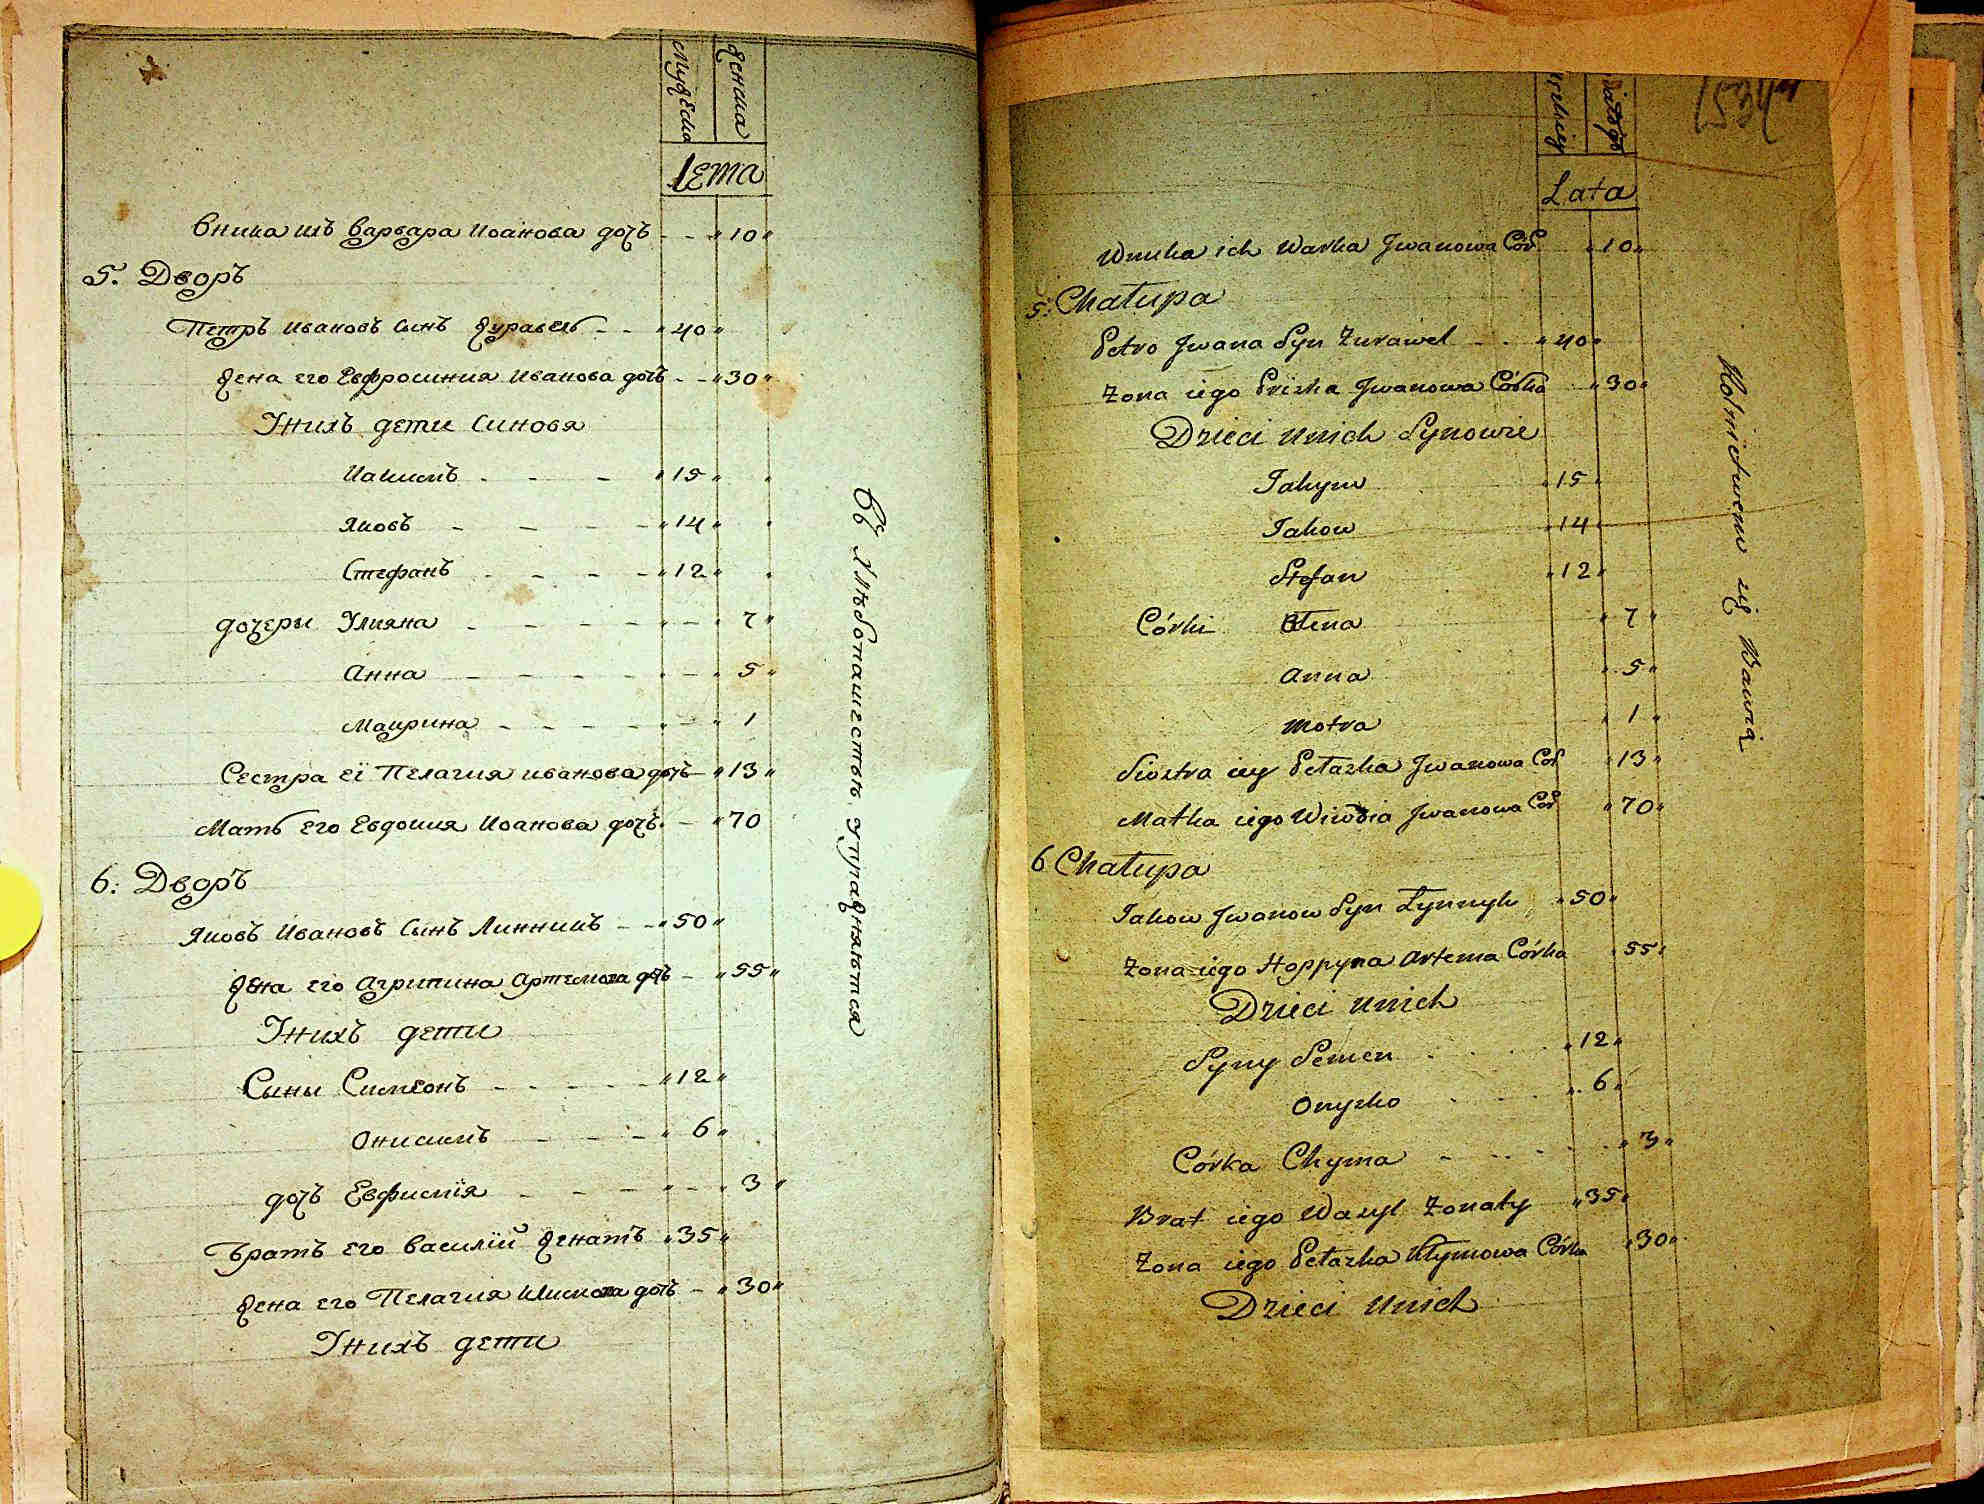 мужеска
женска
Лета
Внука ихъ Варвара Иоанова дочъ - - „ 10 „
5. Дворъ
Петръ Ивановъ Сынъ Журавель - - „ 40 „
Жена его Евфросиния Иванова дочъ - - „ 30 „
Унихъ дети Синовя
Иакимъ - - - „ 15 „
Яковъ - - - - „ 14 „
Стефанъ - - - - „ 12 „
дочери Улияна - - - - - „ 7 „
Анна - - - - - „ 5 „
Матрина - - - - - „ 1
Сестра еї Пелагия иванова дочъ - „ 13 „
Мать его Евдокия Иоанова дочъ - „ 70
6: Дворъ
Яковъ Ивановъ Сынъ Линникъ - - „ 50 „
Жена его Агрипина Артемова дочъ - „ 55 „
Унихъ дети
Сыны Симеонъ - - - - - „ 12 „
Онисимъ - - - - „ 6 „
дочъ Евфимїя - - - „ - „ 3 „
Братъ его Василїй Женатъ „ 35 „
Жена его Пелагия Климова дочъ - „ 30 „
Унихъ дети
Въ Хлѣбопашествѣ упражняются
Lata
Wnuka ich Warka Jwanowa Cór „ 10 „
5: Chałupa
Petro Jwana Syn Zurawel - . „ 40 „
Zona iego Priska Jwanowa Córka „ 30 „
Dzieci unich Synowie
Jakym „ 15 „
Jakow „ 14 „
Stefan „ 12 „
Córki Olena „ 7 „
Anna „ 5 „
Motra „ 1 „
Siostra iey Pełazka Jwanowa Cór „ 13 „
Matka iego Wiwdia Jwanowa Cór „ 70 „
6 Chałupa
Jakow Jwanow Syn Łynnyk „ 50 „
Zona iego Hoppyna Artema Córka „ 55 „
Dzieci unich
Syny Semen . . . „ 12 „
Onyzko . . . „ 6 „
Córka Chyma - . . . . „ 3 „
Brat iego Wasyl Zonaty „ 35 „
Zona iego Pełazka Kłymowa Córka „ 30 „
Dzieci unich
Rolnictwem się bawią